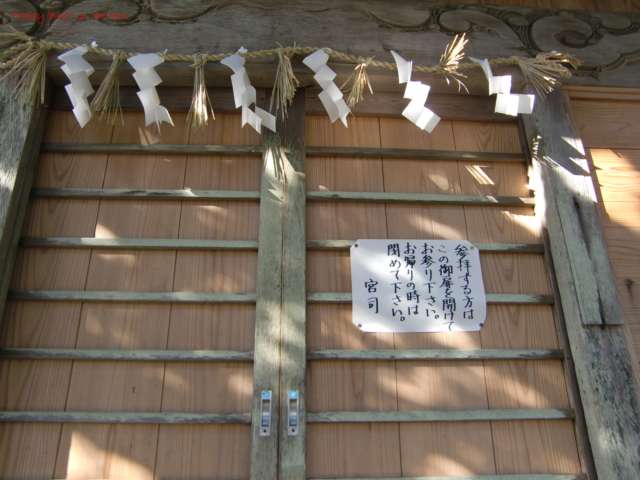 参拝する方は
この御扉を開けて
お参り下さい。
お帰りの時は
閉めて下さい。
宮司